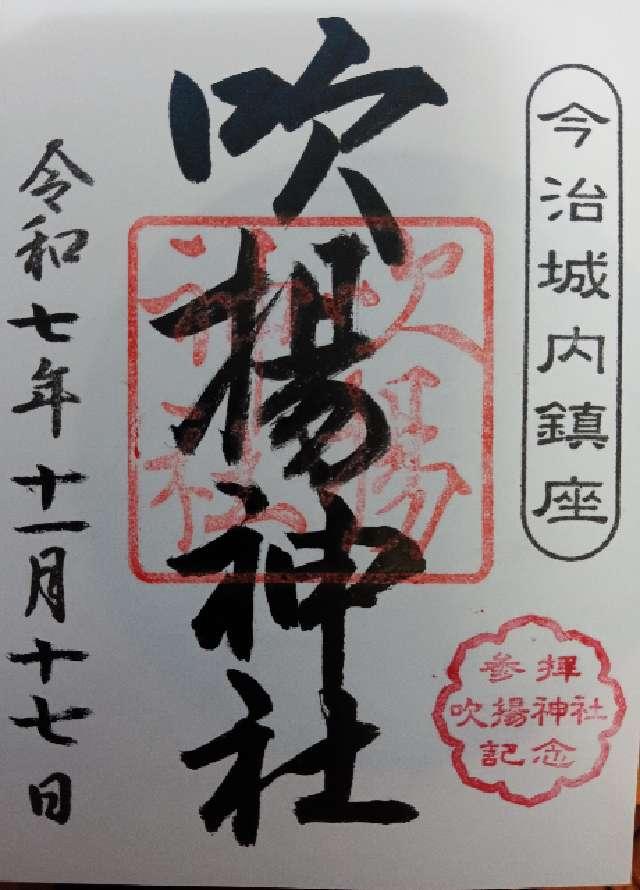 今治城内鎮座
吹揚神社
吹揚
神社
令和七年十一月十七日
参拝
吹揚神社
記念